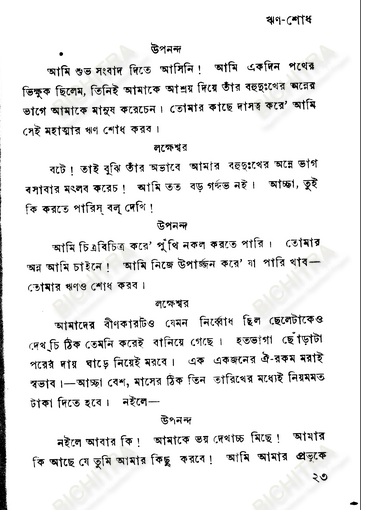 ঋণ-শোধ
উপনন্দ
আমি শুভ সংবাদ দিতে আসিনি! আমি একদিন পথের
ভিক্ষুক ছিলেম, তিনিই আমাকে আশ্রয় দিয়ে তাঁর বহুদুঃখের অন্নের
ভাগে আমাকে মানুষ করেচেন। তোমার কাছে দাসত্ব করে' আমি
সেই মহাত্মার ঋণ শোধ করব।
লক্ষেশ্বর
বটে! তাই বুঝি তাঁর অভাবে আমার বহুদুঃখের অন্নে ভাগ
বসাবার মৎলব করেচ! আমি তত বড় গর্দ্দভ নই। আচ্ছা, তুই
কি করতে পারিস্ বল্ দেখি!
উপনন্দ
আমি চিত্রবিচিত্র করে' পুঁথি নকল করতে পারি। তোমার
অন্ন আমি চাইনে! আমি নিজে উপার্জ্জন করে' যা পারি খাব—
তোমার ঋণও শোধ করব।
লক্ষেশ্বর
আমাদের বীণকারটিও যেমন নির্ব্বোধ ছিল ছেলেটাকেও
দেখ্‌চি ঠিক তেমনি করেই বানিয়ে গেছে। হতভাগা ছোঁড়াটা
পরের দায় ঘাড়ে নিয়েই মরবে। এক একজনের ঐ-রকম মরাই
স্বভাব।—আচ্ছা বেশ, মাসের ঠিক তিন তারিখের মধ্যেই নিয়মমত
টাকা দিতে হবে। নইলে—
উপনন্দ
নইলে আবার কি! আমাকে ভয় দেখাচ্চ মিছে! আমার
কি আছে যে তুমি আমার কিছু করবে! আমি আমার প্রভুকে
২৩
BICHITRA